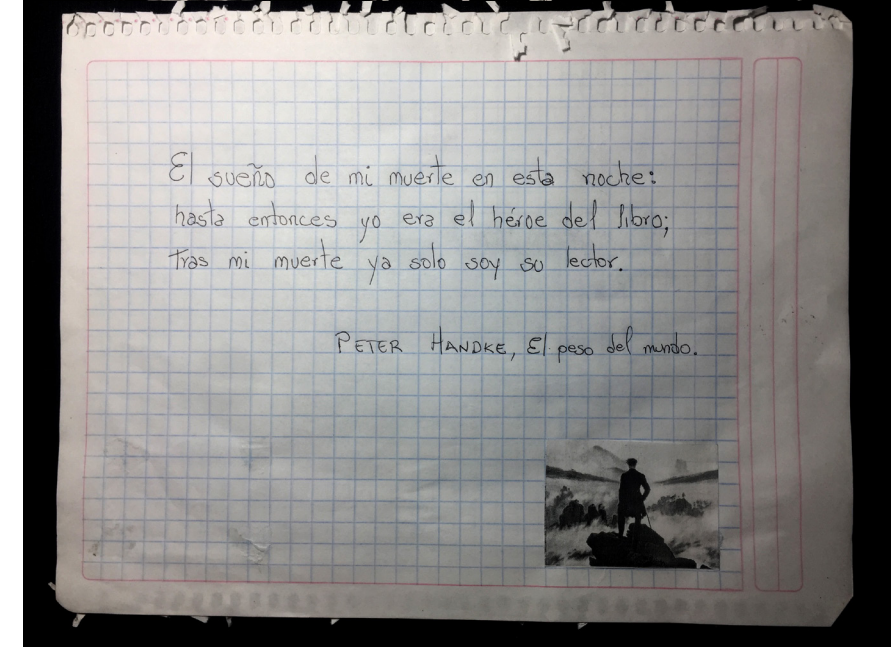 El sueño de mi muerte en esta noche:
hasta entonces yo era el héroe del libro;
tras mi muerte ya solo soy su lector.
PETER HANDKE, El peso del mundo.